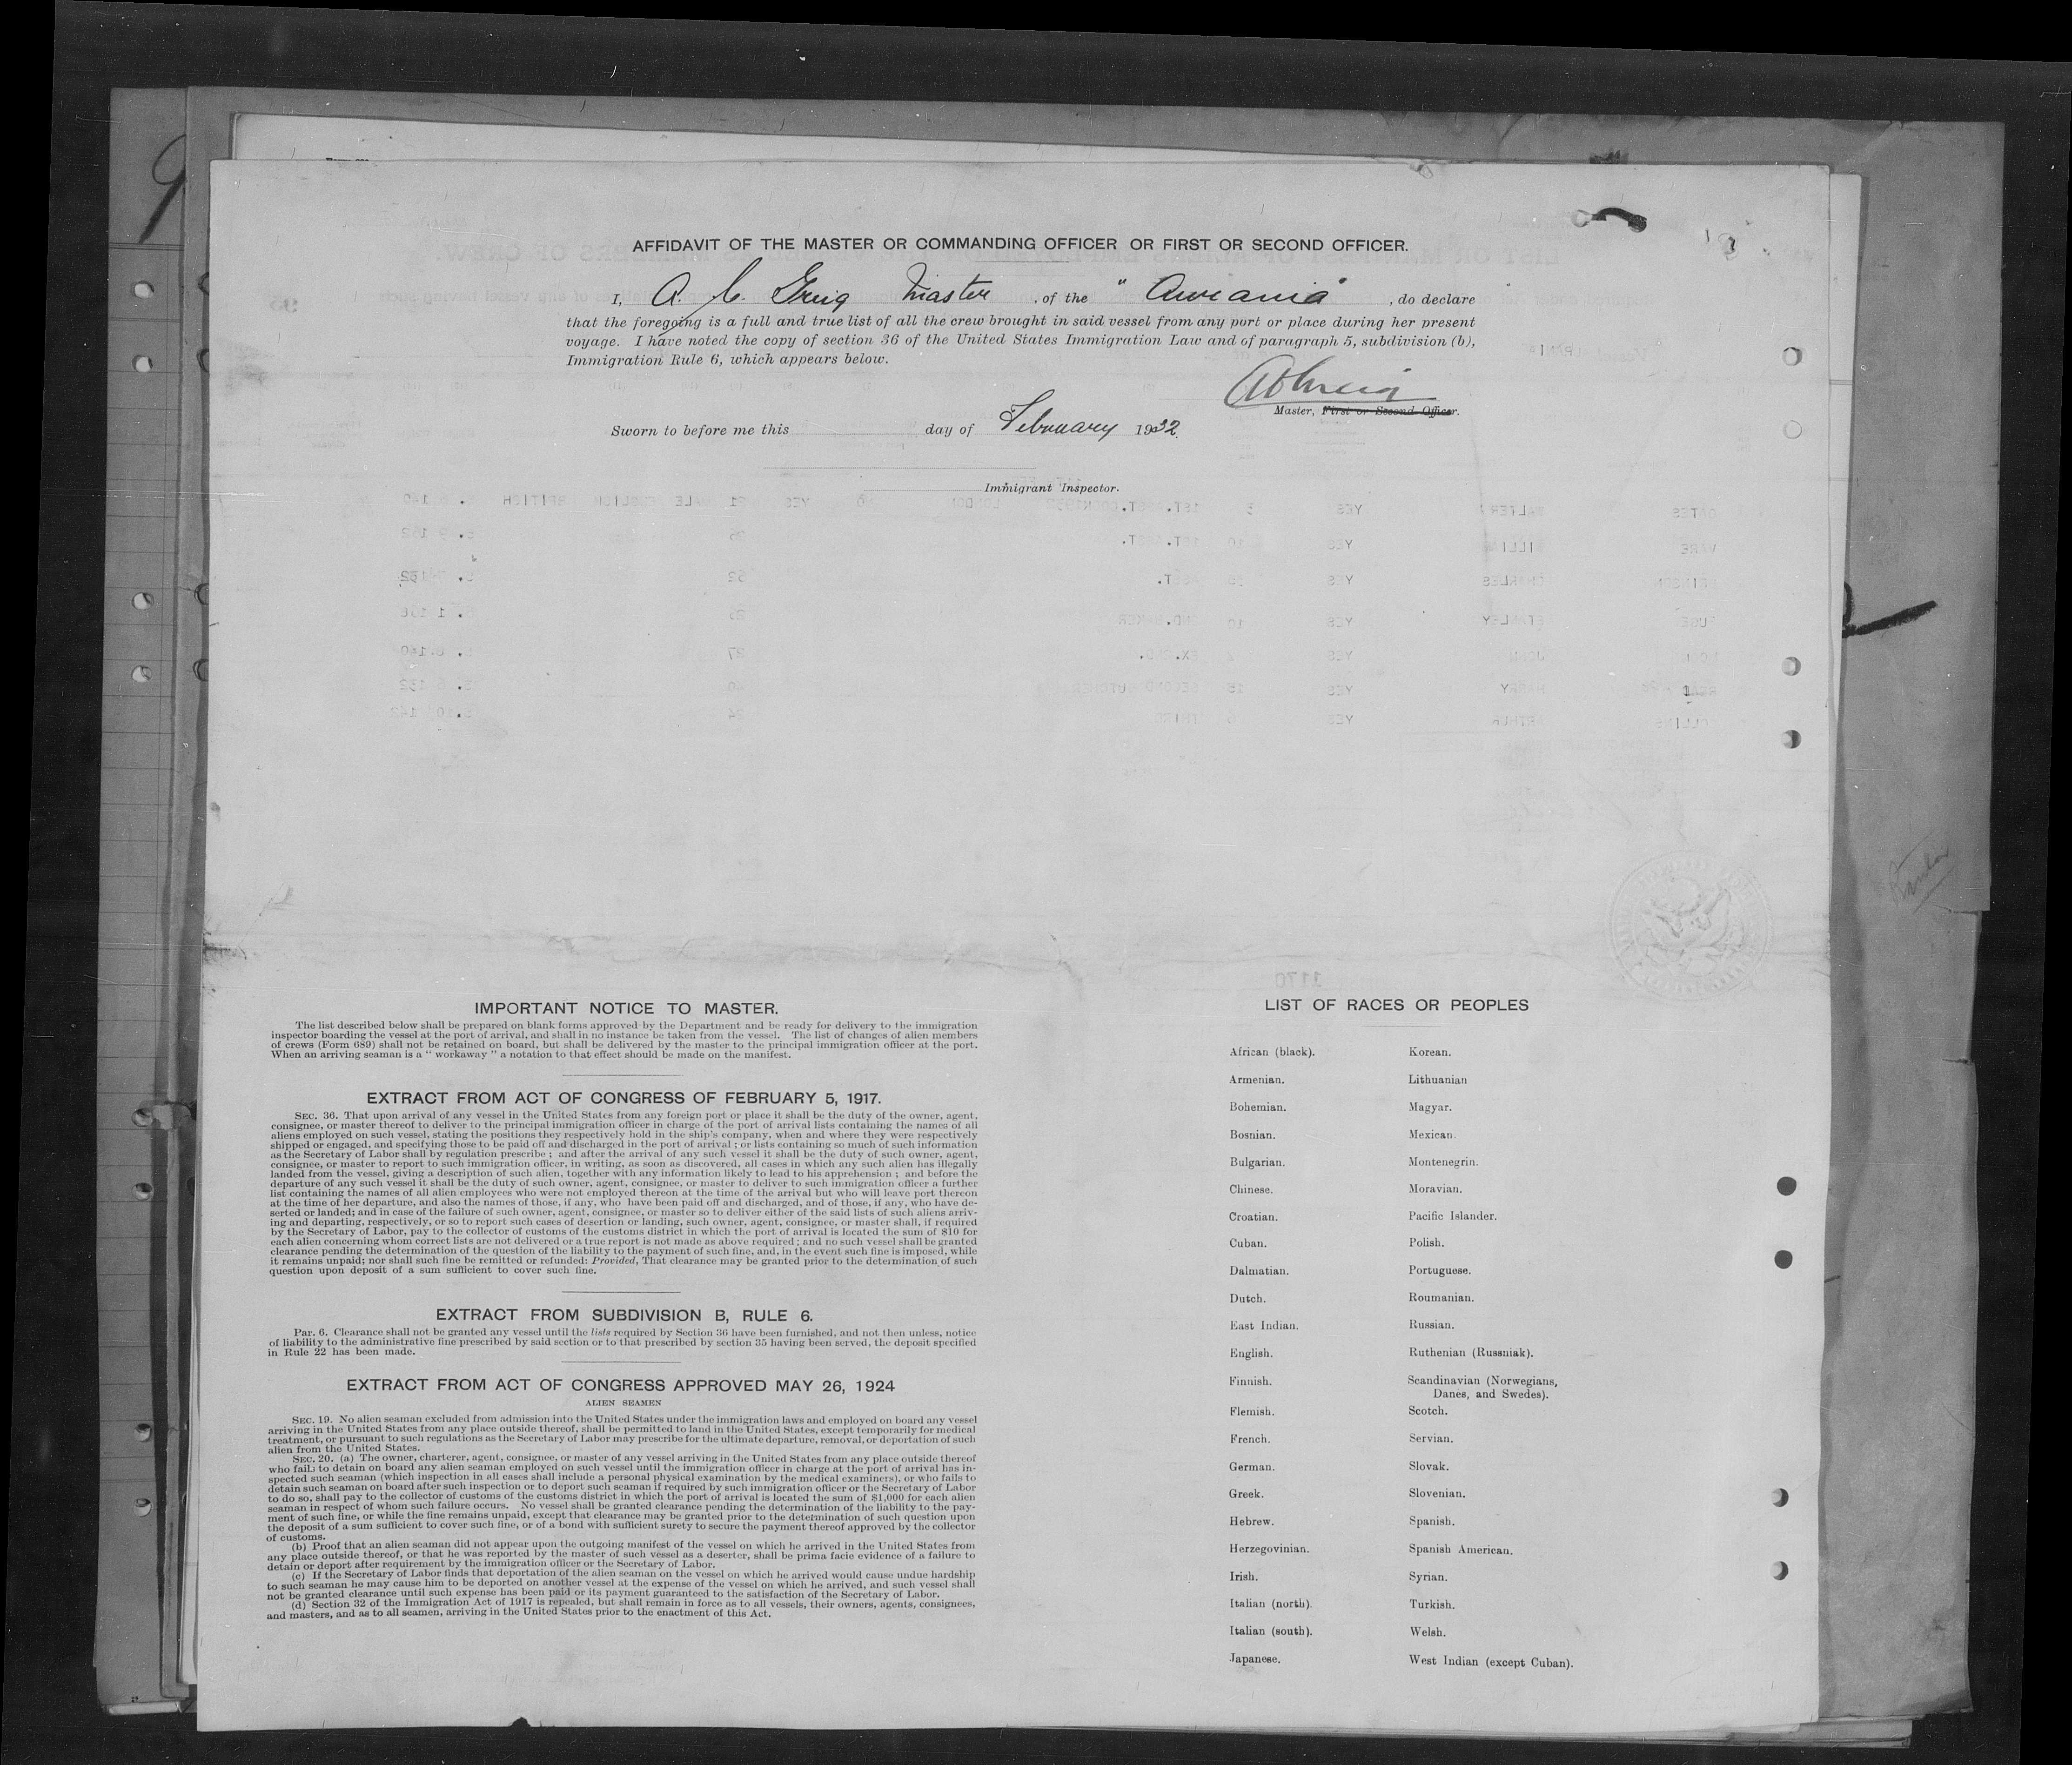 AFFIDAVIT OF THE MASTER OR COMMANDING OFFICER OR FIRST OR SECOND OFFICER.
I, A. C. Greig Master , of the " Aurania" , do declare
that the foregoing is a full and true list of all the crew brought in said vessel from any port or place during her present
voyage. I have noted the copy of section 36 of the United States Immigration Law and of paragraph 5, subdivision (b),
Immigration Rule 6, which appears below.
Master, First or Second Officer.
Sworn to before me this day of February 1932.
Immigrant Inspector.
IMPORTANT NOTICE TO MASTER.
The list described below shall be prepared on blank forms approved by the Department and be ready for delivery to the immigration
inspector boarding the vessel at the port of arrival, and shall in no instance be taken from the vessel. The list of changes of alien members
of crews (Form 689) shall not be retained on board, but shall be delivered by the master to the principal immigration officer at the port.
When an arriving seaman is a " workaway " a notation to that effect should be made on the manifest.
EXTRACT FROM ACT OF CONGRESS OF FEBRUARY 5, 1917.
SEC. 36. That upon arrival of any vessel in the United States from any foreign port or place it shall be the duty of the owner, agent,
consignee, or master thereof to deliver to the principal immigration officer in charge of the port of arrival lists containing the names of all
aliens employed on such vessel, stating the positions they respectively hold in the ship's company, when and where they were respectively
shipped or engaged, and specifying those to be paid off and discharged in the port of arrival ; or lists containing so much of such information
as the Secretary of Labor shall by regulation prescribe ; and after the arrival of any such vessel it shall be the duty of such owner, agent,
consignee, or master to report to such immigration officer, in writing, as soon as discovered, all cases in which any such alien has illegally
landed from the vessel, giving a description of such alien, together with any information likely to lead to his apprehension ; and before the
departure of any such vessel it shall be the duty of such owner, agent, consignee, or master to deliver to such immigration officer a further
list containing the names of all alien employees who were not employed thereon at the time of the arrival but who will leave port thereon
at the time of her departure, and also the names of those, if any, who have been paid off and discharged, and of those, if any, who have de-
serted or landed; and in case of the failure of such owner, agent, consignee, or master so to deliver either of the said lists of such aliens arriv-
ing and departing, respectively, or so to report such cases of desertion or landing, such owner, agent, consignee, or master shall, if required
by the Secretary of Labor, pay to the collector of customs of the customs district in which the port of arrival is located the sum of $10 for
each alien concerning whom correct lists are not delivered or a true report is not made as above required ; and no such vessel shall be granted
clearance pending the determination of the question of the liability to the payment of such fine, and, in the event such fine is imposed, while
it remains unpaid; nor shall such fine be remitted or refunded: Provided, That clearance may be granted prior to the determination of such
question upon deposit of a sum sufficient to cover such fine.
EXTRACT FROM SUBDIVISION B, RULE 6.
Par. 6. Clearance shall not be granted any vessel until the lists required by Section 36 have been furnished, and not then unless, notice
of liability to the administrative fine prescribed by said section or to that prescribed by section 35 having been served, the deposit specified
in Rule 22 has been made.
EXTRACT FROM ACT OF CONGRESS APPROVED MAY 26, 1924
ALIEN SEAMEN
SEC. 19. No alien seaman excluded from admission into the United States under the immigration laws and employed on board any vessel
arriving in the United States from any place outside thereof, shall be permitted to land in the United States, except temporarily for medical
treatment, or pursuant to such regulations as the Secretary of Labor may prescribe for the ultimate departure, removal, or deportation of such
alien from the United States.
SEC. 20. (a) The owner, charterer, agent, consignee, or master of any vessel arriving in the United States from any place outside thereof
who fails to detain on board any alien seaman employed on such vessel until the immigration officer in charge at the port of arrival has in-
spected such seaman (which inspection in all cases shall include a personal physical examination by the medical examiners), or who fails to
detain such seaman on board after such inspection or to deport such seaman if required by such immigration officer or the Secretary of Labor
to do so, shall pay to the collector of customs of the customs district in which the port of arrival is located the sum of $1,000 for each alien
seaman in respect of whom such failure occurs. No vessel shall be granted clearance pending the determination of the liability to the pay-
ment of such fine, or while the fine remains unpaid, except that clearance may be granted prior to the determination of such question upon
the deposit of a sum sufficient to cover such fine, or of a bond with sufficient surety to secure the payment thereof approved by the collector
of customs.
(b) Proof that an alien seaman did not appear upon the outgoing manifest of the vessel on which he arrived in the United States from
any place outside thereof, or that he was reported by the master of such vessel as a deserter, shall be prima facie evidence of a failure to
detain or deport after requirement by the immigration officer or the Secretary of Labor.
(c) If the Secretary of Labor finds that deportation of the alien seaman on the vessel on which he arrived would cause undue hardship
to such seaman he may cause him to be deported on another vessel at the expense of the vessel on which he arrived, and such vessel shall
not be granted clearance until such expense has been paid or its payment guaranteed to the satisfaction of the Secretary of Labor.
(d) Section 32 of the Immigration Act of 1917 is repealed, but shall remain in force as to all vessels, their owners, agents, consignees,
and masters, and as to all seamen, arriving in the United States prior to the enactment of this Act.
LIST OF RACES OR PEOPLES
African (black).
Armenian.
Bohemian.
Bosnian.
Bulgarian.
Chinese.
Croatian.
Cuban.
Dalmatian.
Dutch.
East Indian.
English.
Finnish.
Flemish.
French.
German.
Greek.
Hebrew.
Herzegovinian.
Irish.
Italian (north).
Italian (south).
Japanese.
Korean.
Lithuanian
Magyar.
Mexican.
Montenegrin.
Moravian.
Pacific Islander.
Polish.
Portuguese.
Roumanian.
Russian.
Ruthenian (Russniak).
Scandinavian (Norwegians,
Danes, and Swedes).
Scotch.
Servian.
Slovak.
Slovenian.
Spanish.
Spanish American.
Syrian.
Turkish.
Welsh.
West Indian (except Cuban).